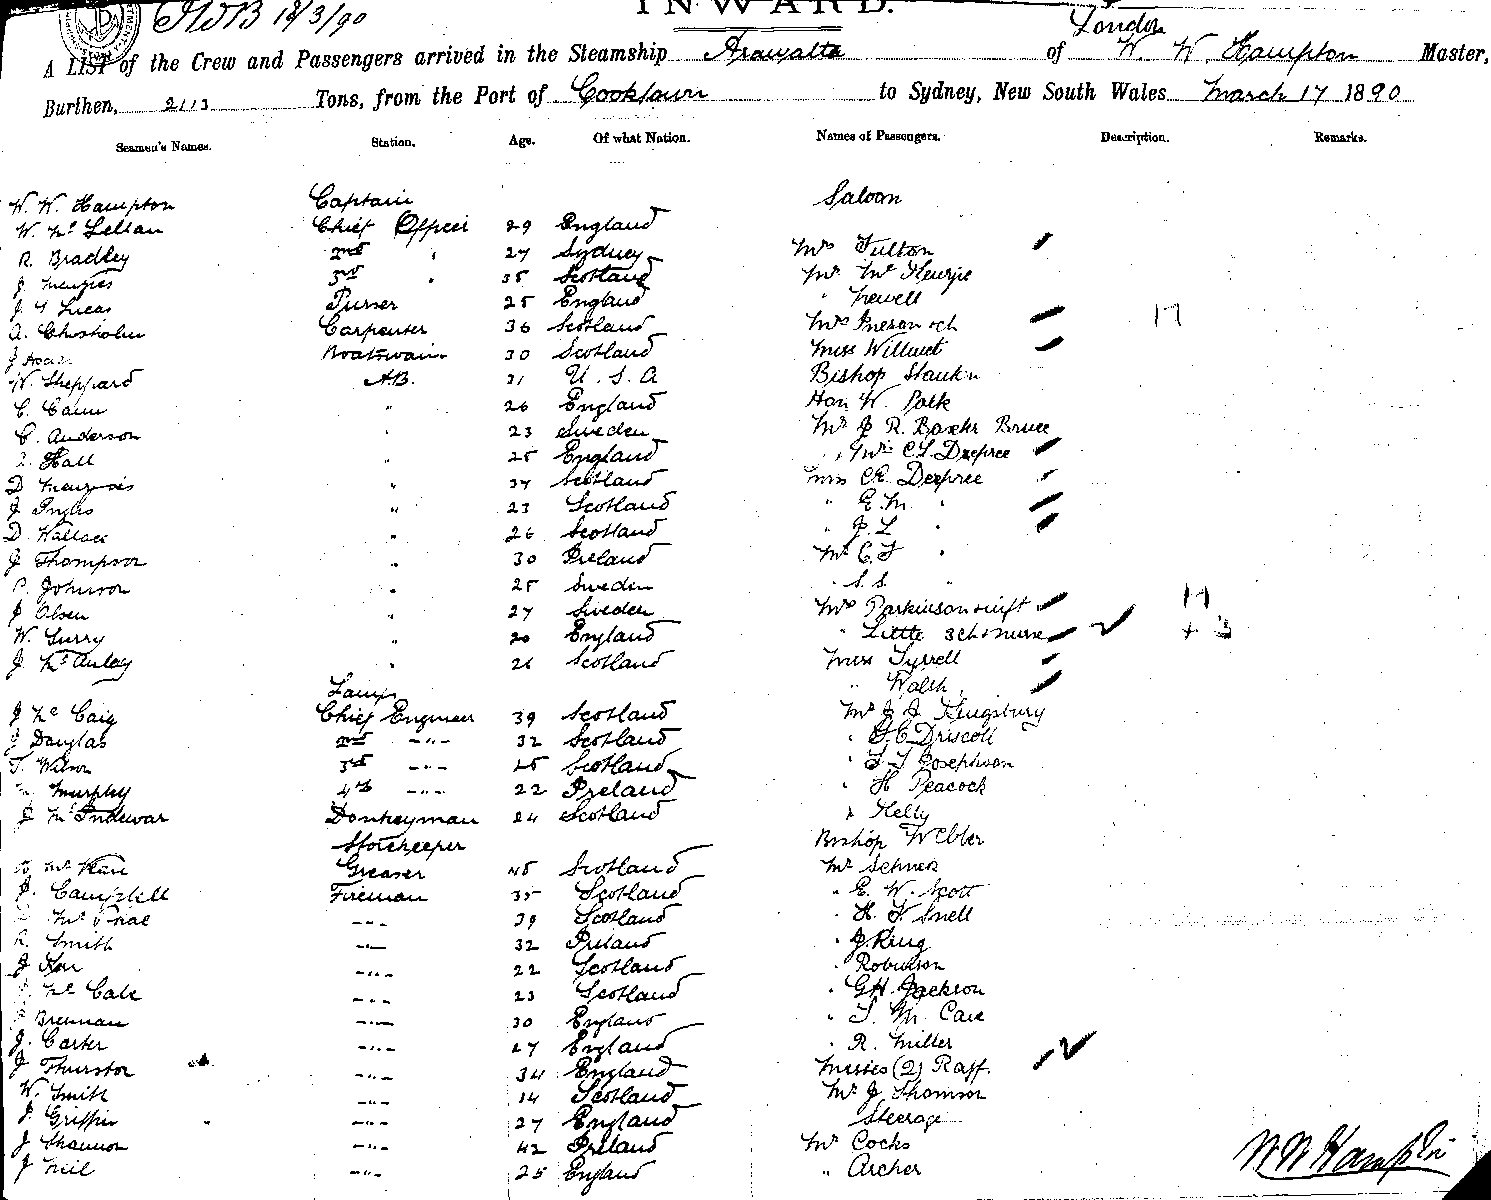 18/3/90
INWARD.
London
A LIST of the Crew and Passengers arrived in the Steamship Arawatta of W. W. Hampton Master,
Burthen, 2113 Tons, from the Port of Cooktown to Sydney, New South Wales March 17 1890
Seamen's Names. Station. Age. Of what Nation. Names of Passengers. Description. Remarks.
W. W. Hampton Captain Saloon
W. McLellan Chief Officer 29 England
R. Bradley 2nd " 27 Sydney Mrs Fulton
J Menzies 3rd " 35 Scotland Mr
J Lucas Purser 25 England " Newell
A. Chisholm Carpenter 36 Scotland Mrs 17
J Boatswain 30 Scotland Miss
W. Sheppard A.B. 31 U. S. A Bishop
C. Cann " 26 England Hon W.
C. Anderson " 23 Sweden Mr J R. Baxter Bruce
Hall " 25 England Mrs
D Menzies " 37 Scotland Miss
J Inglis " 23 Scotland " E. M. "
D. Wallace " 26 Scotland " J. L "
J Thompson " 30 Ireland Mr C. F "
Johnson " 25 Sweden " S. S. "
J Olsen " 27 Sweden Mrs Parkinson
W. Surry " 20 England " Little 3 ch & nurse + 3
J McAuley " 26 Scotland Miss Tyrrell
Lamps " Walsh
J McCaig Chief Engineer 39 Scotland Mr J J Kingsbury
J Douglas 2nd -"- 32 Scotland " Driscoll
T. Wilson 3rd -"- Scotland " Josephson
Murphy 4th -"- 22 Ireland " H Peacock
J McIndewar Donkeyman 24 Scotland " Kelly
Storekeeper Bishop Webber
Greaser 45 Scotland Mr
J. Campbell Fireman 35 Scotland " E. W. Scott
-"- 39 Scotland " H. F Snell
Smith -"- 32 Ireland " J. King
J Kerr -"- 22 Scotland " Robinson
-"- 23 Scotland " G H. Jackson
Brennan -"- 30 England
J. Carter -"- 27 England " R. Miller
J Thurston -"- 34 England Misses (2) Raff.
W. Smith -"- Scotland Mr J Thomson
J. Griffin -"- 27 England Steerage
J Shannon -"- 42 Ireland Mr Cocks
J Neil -"- 25 England " Archer
W W Hampton